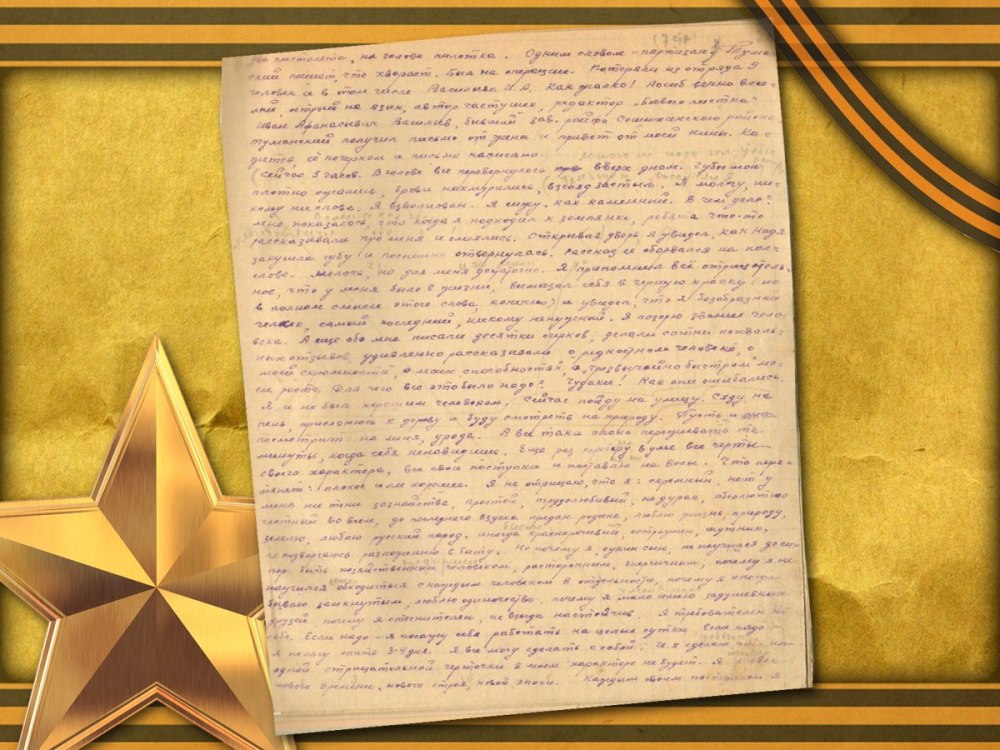 два пистолета, на голове пилотка. Одним словом – партизан! Тума-
ский пишет, что хворает. Был на операции. Потеряли из отряда 9
человек и в том числе Васильева И.А. Как жалко! Погиб вечно весё-
лый, острый на язык, автор частушек, редактор „боевого листка"
Иван Афанасьевич Васильев, бывший зав. райфо Сошихинского района.
Туманский получил письмо от жены и привет от моей Нины. Ка-
жется, её почерком и письмо написано.
(Сейчас 5 часов. В голове все перевернулось вверх дном. Губы мои
плотно сжались, брови нахмурились, взгляд застыл. Я молчу, ни-
кому ни слова. Я взволнован. Я сижу, как каменный. В чем дело?
Мне показалось, что когда я подходил к землянке, ребята что-то
рассказывали про меня и смеялись. Открывая дверь я увидел, как Надя
закусила губу и поспешно отвернулась. Рассказ её оборвался на пол-
слове. Мелочь, но для меня достаточно. Я припомнил всё отрицатель-
ное, что у меня было в жизни, вымазал себя в черную краску (не
в полном смысле этого слова, конечно) и увидел, что я безобразный
человек, самый последний, никому ненужный. Я позорю звание чело-
века. А еще обо мне писали десятки очерков, делали сотни похваль-
ных отзывов, удивленно рассказывали о редкостном человеке, о
моей скромности, о моих способностях, о „чрезвычайно быстром" мо-
ем росте. Для чего все это было надо? Чудаки! Как они ошибались.
Я и не был хорошим человеком. Сейчас пойду на улицу. Сяду на
пень, прислонюсь к дереву и буду смотреть на природу. Пусть и она
посмотрит на меня, урода. А все таки плохо переживать те
минуты, когда себя ненавидишь. Еще раз переберу в уме все черты
своего характера, все свои поступки и поставлю на весы. Что пере-
тянет: плохое или хорошее. Я не отрицаю, что я: скромный, нет у
меня ни тени зазнайства, простой, трудолюбивый, не дурак, абсолютно
честный во всем, до последнего вздоха предан родине, люблю жизнь, природу,
землю, люблю русский народ. Иногда красноречивый, остроумен, шутник,
не подвергаюсь разложению в быту. Но почему я, сукин сын, не научился до сих
пор быть хозяйственным человеком, расторопным, энергичным, почему я не
научился обходиться с каждым человеком в отдельности, почему я иногда
бываю замкнутым, люблю одиночество. Почему я мало имею задушевных
друзей, почему я стеснителен, не всегда настойчив. Я требователен к
себе. Если надо – я посажу себя работать на целые сутки. Если надо –
я пелажу спать 3-4 дня. Я все могу сделать с собой. И я сделаю так. Ни
одной отрицательной черточки в моем характере не будет. Я человек
нового времени, нового строя, новой эпохи. Каждым своим поступком я